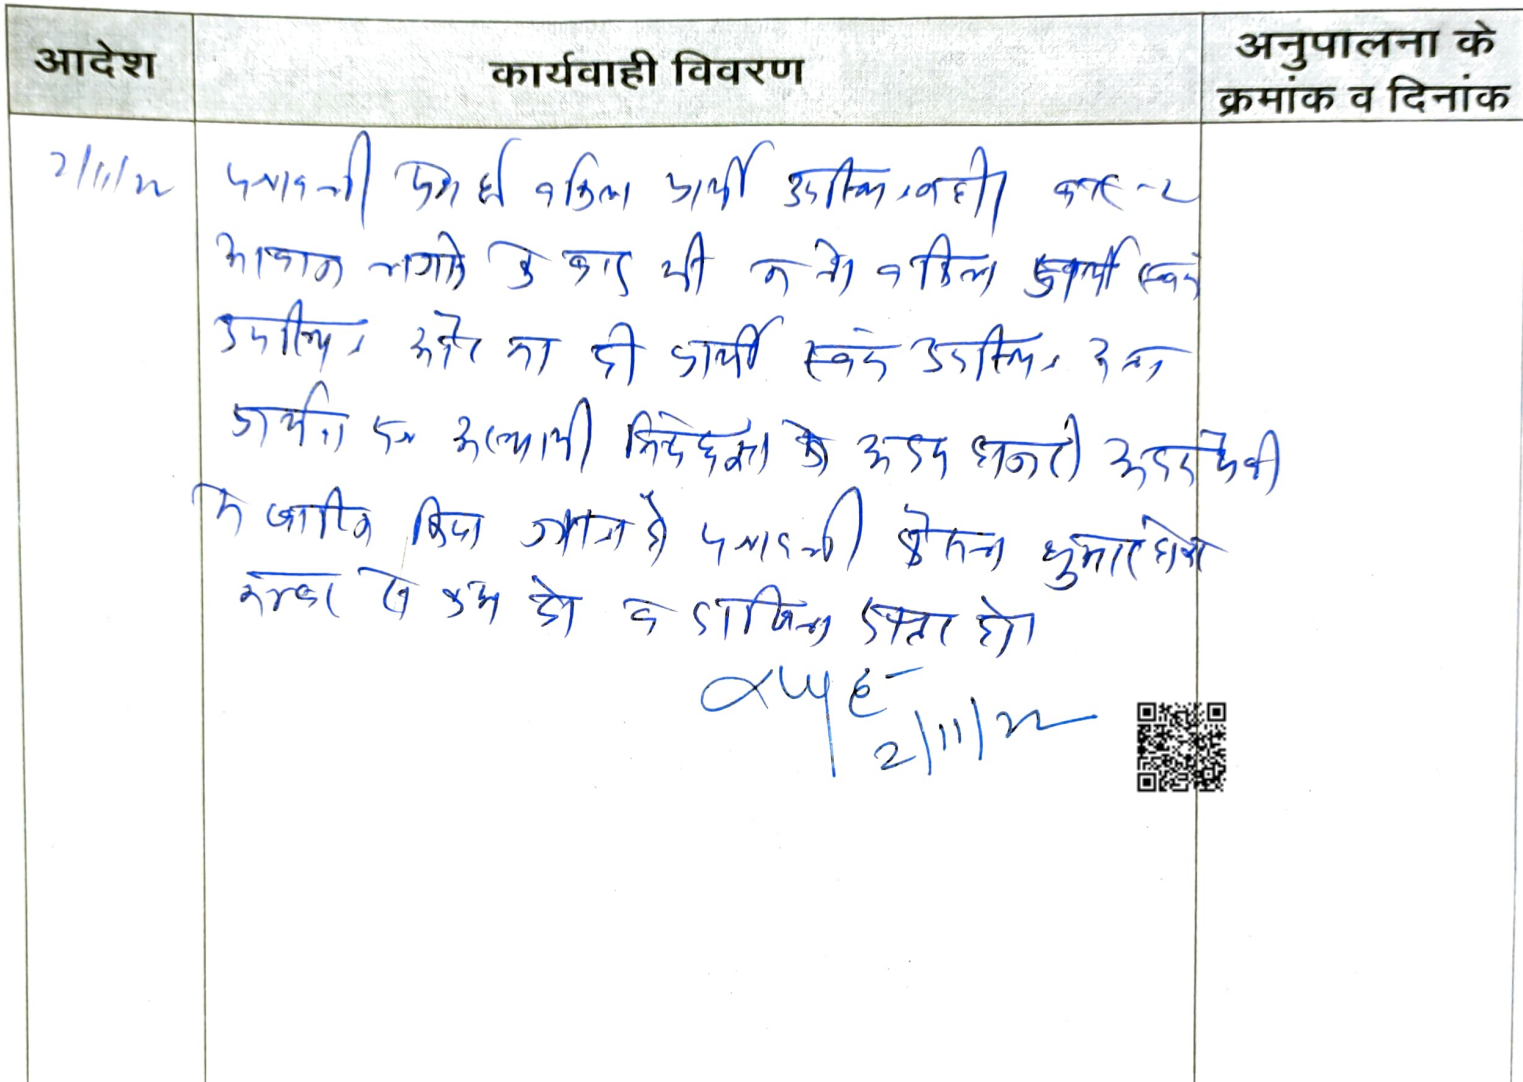 आदेश
कार्यवाही विवरण
अनुपालना के
क्रमांक व दिनांक
2/11/22
पत्रावली पेश हुई वकिल प्रार्थी उपस्थित नही। बार-2
आवाज लगाने के बाद भी न तो वकिल प्रार्थी स्वयं
उपस्थित और ना ही प्रार्थी स्वयं उपस्थित
प्रार्थना पत्र अस्थायी निषेधाज्ञा अदम हाजरी अदम पैरवी
मे खारिज किया जाता है पत्रावली फैसल शुमार होकर
नम्बर से कम हो व दाखिल दफ्तर हो।
2/11/22